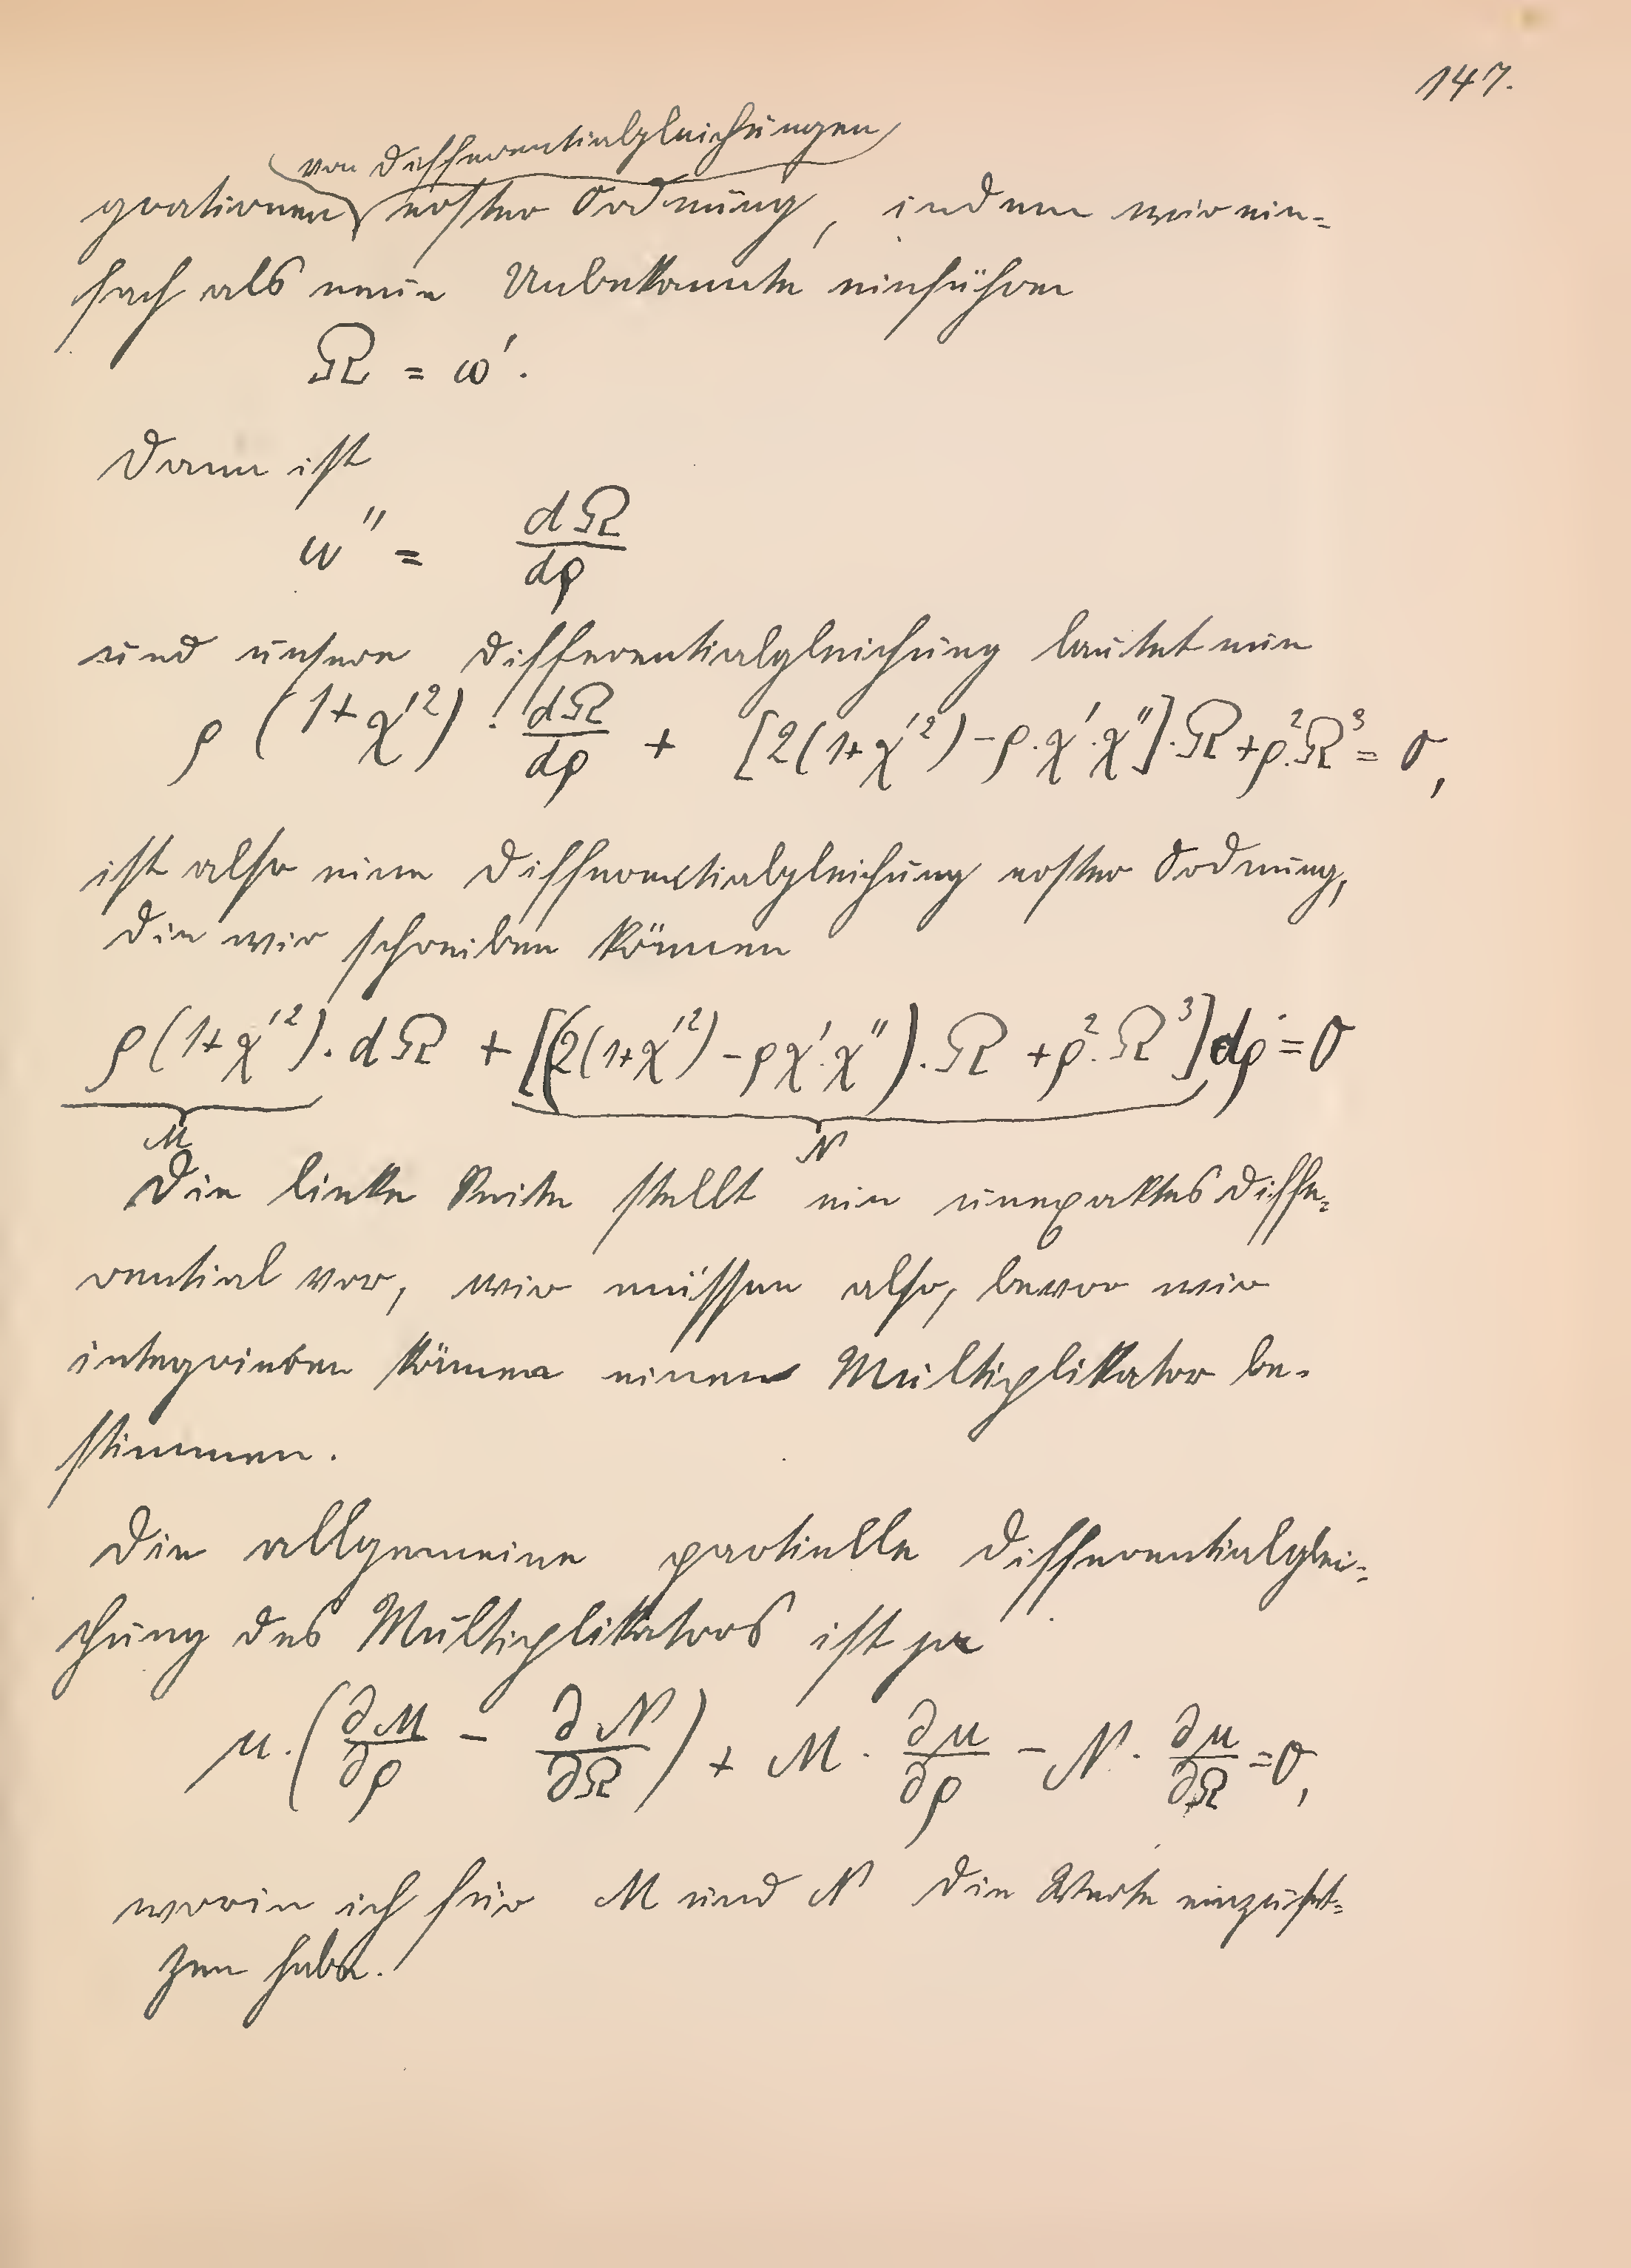 147.
von Differentialgleichungen
grationen erster Ordnung, indem wir ein=
fach als neue Unbekannte einführen
Ω = ω'.
Dann ist
ω'' = dΩ/dρ
und unsere Differentialgleichung lautet nun
ρ (1+χ'²) · dΩ/dρ + [2(1+χ'²) - ρ·χ'·χ'']·Ω + ρ²·Ω³ = 0,
ist also eine Differentialgleichung erster Ordnung,
die wir schreiben können
ρ(1+χ'²)·dΩ + [(2(1+χ'²) - ρχ'·χ'')·Ω + ρ²·Ω³]dρ = 0
M N
Die linke Seite stellt ein unexaktes Diffe=
rential vor, wir müssen also, bevor wir
integrieren können einen Multiplikator be-
stimmen.
Die allgemeine partielle Differentialglei=
chung des Multiplikators ist ja
μ·(∂M/∂ρ - ∂N/∂Ω) + M · ∂μ/∂ρ - N · ∂μ/∂Ω = 0,
worin ich für M und N die Werte einzuset=
zen habe.